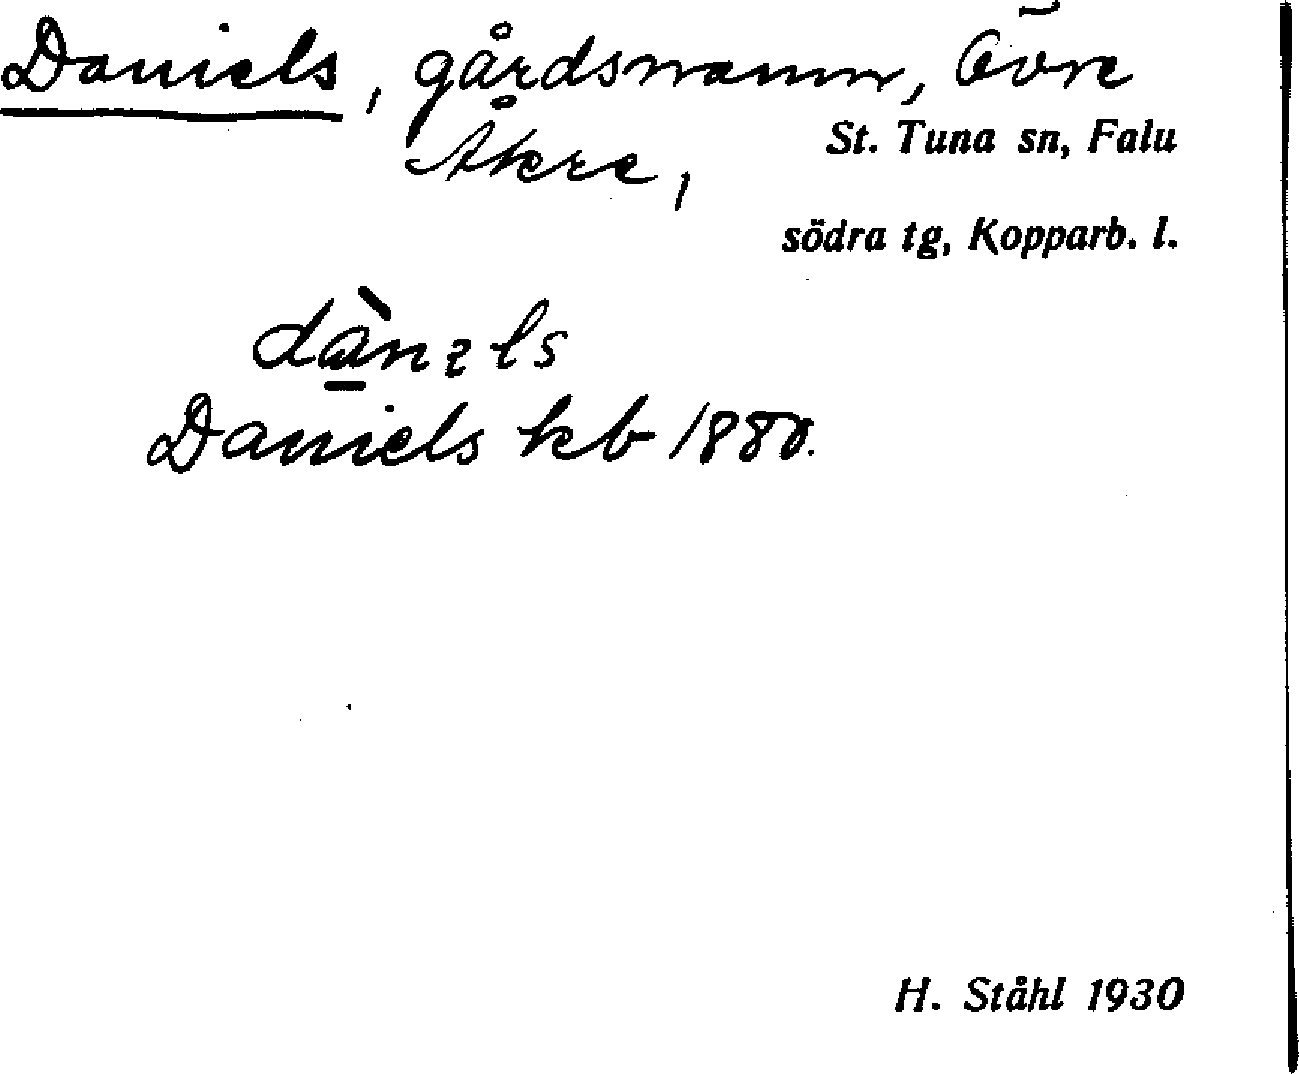 Daniels, gårdsnamn, Övre
Åkre, St. Tuna sn, Falu
södra tg, Kopparb. l.
Daniels kb 1880.
H. Ståhl 1930